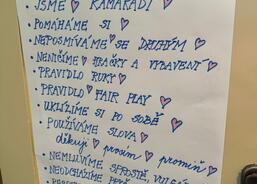 • JSME KAMARÁDI
• POMÁHÁME SI
• NEPOSMÍVÁME SE DRUHÝM
• NENIČÍME HRAČKY A VYBAVENÍ
• PRAVIDLO RUKY
• PRAVIDLO FAIR PLAY
• UKLÍZÍME SI PO SOBĚ
• POUŽÍVÁME SLOVA
děkuji prosím promiň
• NEMLUVÍME SPROSTĚ, VULG
• NEODCHÁZÍME